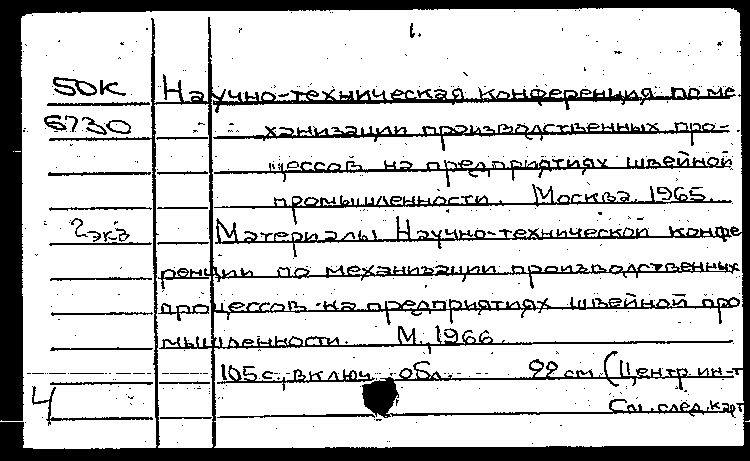 1.
50К Научно-техническая конференция по ме
6730 ханизации производственных про-
цессов на предприятиях швейной
промышленности. Москва. 1965.
2экз Материалы Научно-технической конфе
ренции по механизации производственных
процессов на предприятиях швейной про
мышленности. М., 1966.
105 с., включ. обл. 22 cm (Центр ин-т
4 См. след. карт